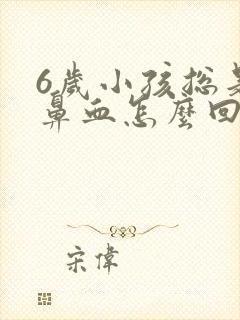 6歲小孩總是
鼻血怎麼回
宋偉